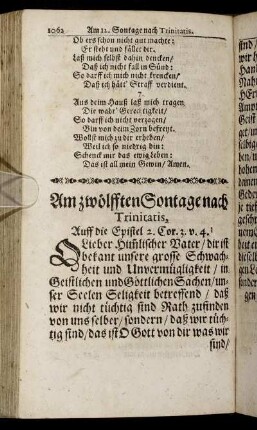 1062 Am 11. Sontage nach Trinitatis.
Ob ers schon nicht gut machte;
Er steht und fället der.
Laß mich selbst dahin dencken/
Daß ich nicht fall in Sünd:
So darff ich mich nicht krencken/
Daß ich hätt' Straff verdient.
Aus deim Hauß laß mich tragen
Die wahr' Gerechtigkeit/
So darff ich nicht verzagen/
Bin von deim Zorn befreyt.
Wollst mich zu dir erheben/
Weil ich so niedrig bin:
Schenck mir das ewig Leben:
Das ist all mein Gewin/ Amen.
Am zwölfften Sontage nach
Trinitatis,
Auff die Epistel 2. Cor. 3. v. 4.
O Lieber Him̃lischer Vater/ dir ist
bekant unsere grosse Schwach-
heit und Unvermügligkeit/ in
Geistlichen und Göttlichen Sachen/ un-
ser Seelen Seligkeit betreffend/ daß
wir nicht tüchtig sind Rath zufinden
von uns selber/ sondern/ daß wir tüch-
tig sind/ das ist O Gott von dir was wir
sind/